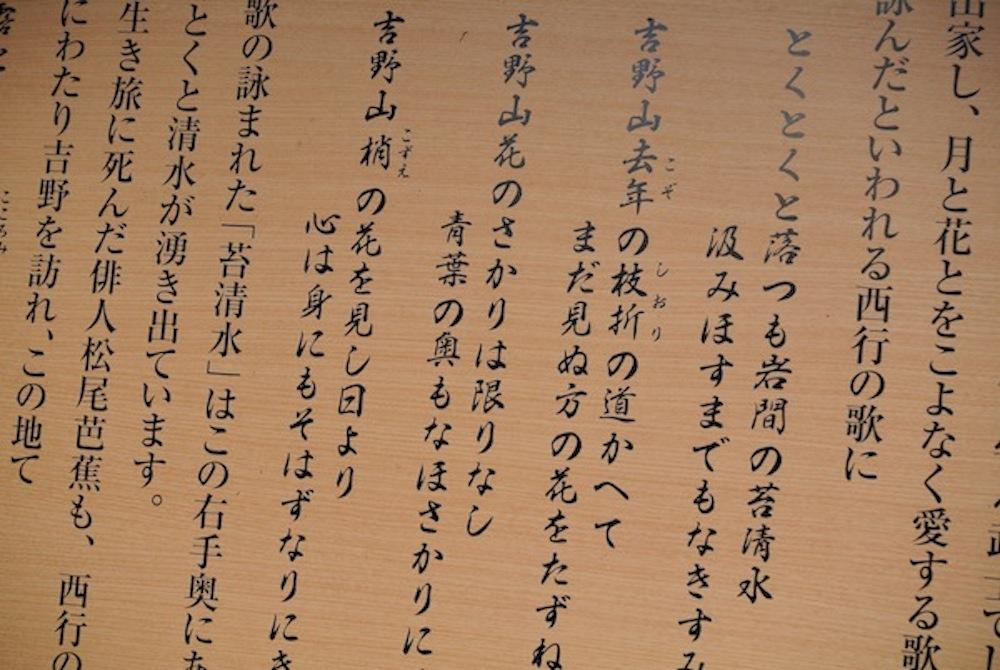 出家し、月と花とをこよなく愛する歌
詠んだといわれる西行の歌に
とくとくと落つも岩間の苔清水
汲みほすまでもなきすみ
吉野山去年の枝折の道かへて
こぞ
しおり
まだ見ぬ方の花をたずね
吉野山花のさかりは限りなし
青葉の奥もなほさかりに
吉野山梢の花を見し日より
こずえ
心は身にもそはずなりにき
歌の詠まれた「苔清水」はこの右手奥にあ
とくと清水が湧き出ています。
生き旅に死んだ俳人松尾芭蕉も、西行の
にわたり吉野を訪れ、この地て
露と